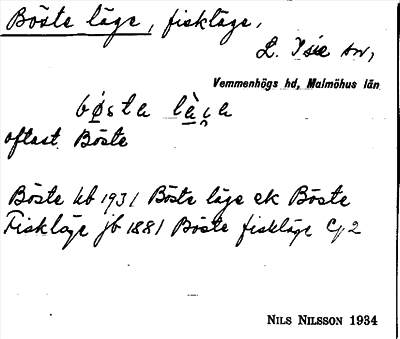 Böste läge, fiskläge,
L. Isie sn,
Vemmenhögs hd, Malmöhus län
bøsta
oftast Böste
Böste hb 1931 Böste läge ek Böste
Fiskläge jb 1881 Böste fiskläge
NILS NILSSON 1934